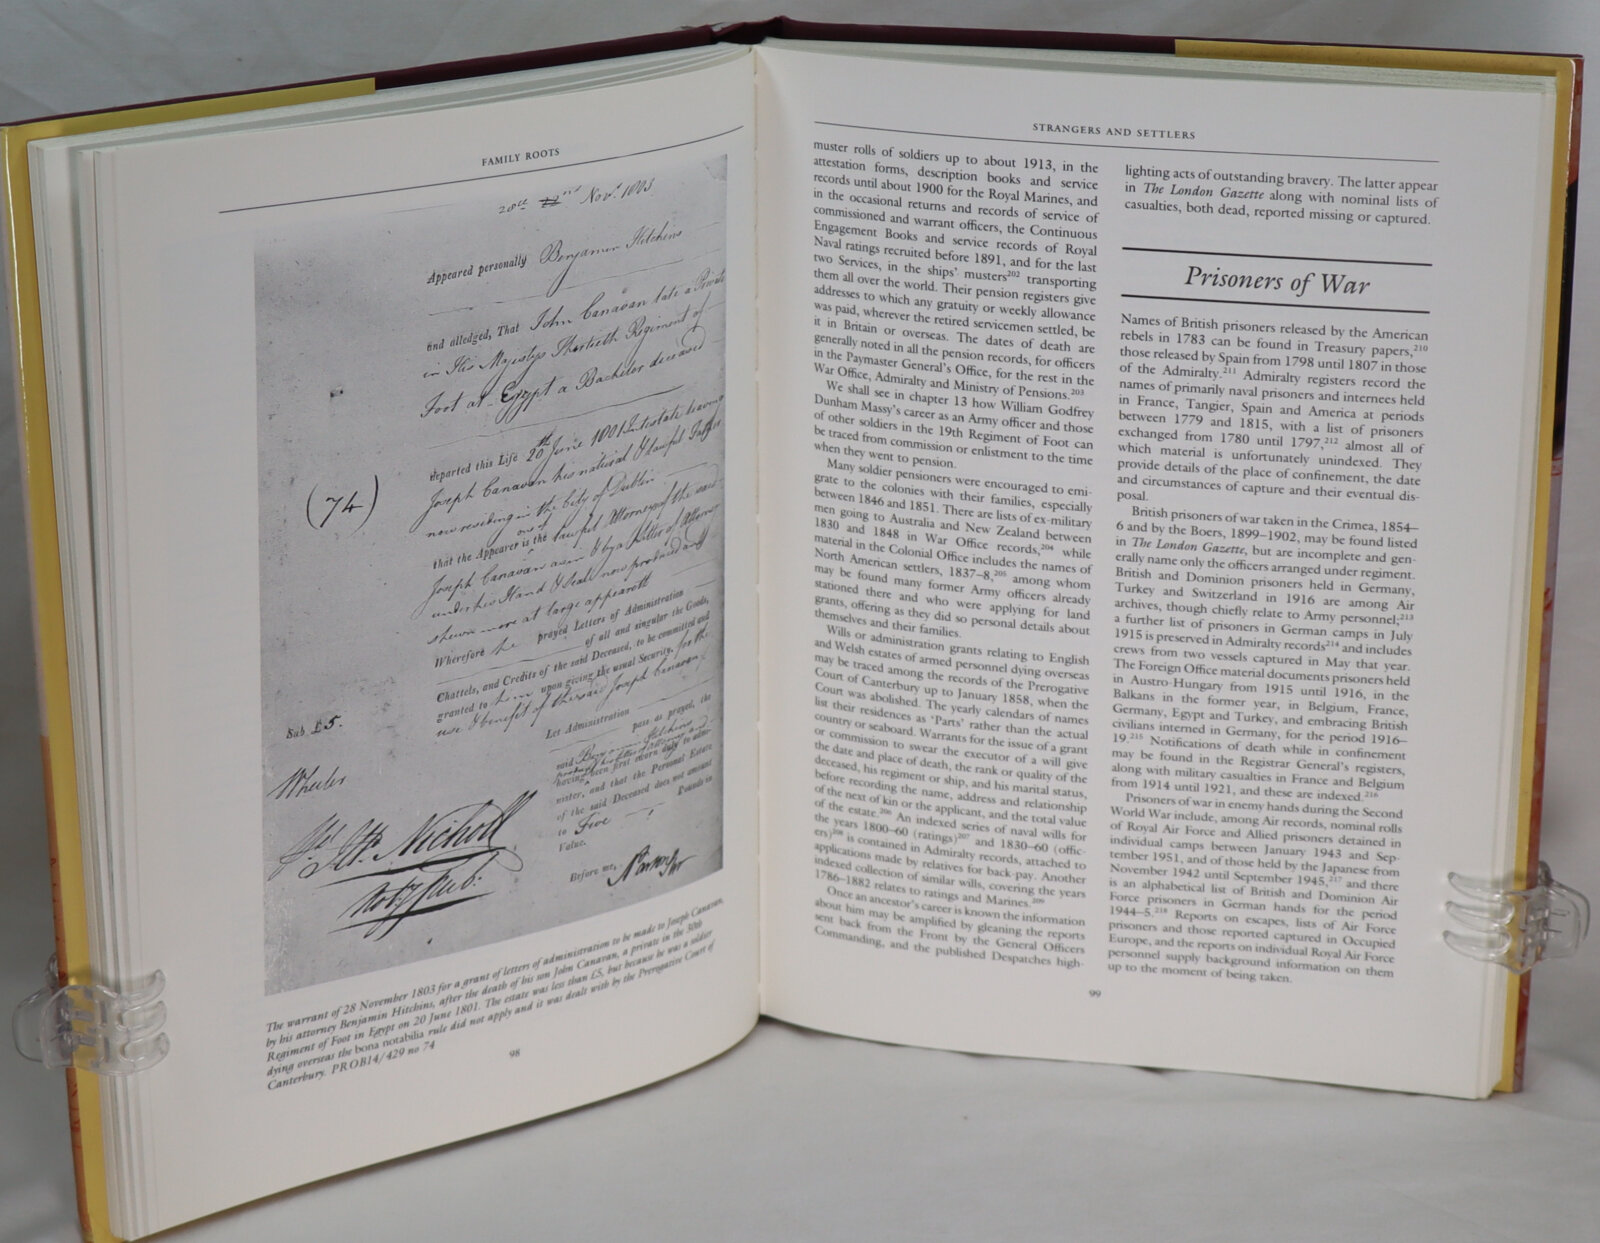 FAMILY ROOTS
28th 22nd Novr. 1803
Appeared personally Benjamin Hitchins
and alledged, That John Canavan late a Private
in His Majestys Thirtieth Regiment of
Foot at Egypt a Bachelor deceased
departed this Life 20th June 1801 Intestate leaving
Joseph Canavan his natural & lawful Father
now residing in the City of Dublin
that the Appearer is one of the lawful Attorneys of the said
Joseph Canavan as in & by a Letter of Attorney
under his Hand & Seal now produced and
shewn more at large appeareth
(74)
Wherefore he prayed Letters of Administration
of all and singular the Goods,
Chattels, and Credits of the said Deceased, to be committed and
granted to him upon giving the usual Security, for the
use & benefit of the said Joseph Canavan
Let Administration
pass as prayed, the
said Benjamin Hitchins
having been first sworn duly to admi-
nister, and that the Personal Estate
of the said Deceased does not amount
to Five Pounds in
Value.
Before me,
Sub £5.
Wheeler
Nicholl
The warrant of 28 November 1803 for a grant of letters of administration to be made to Joseph Canavan,
by his attorney Benjamin Hitchins, after the death of his son John Canavan, a private in the 30th
Regiment of Foot in Egypt on 20 June 1801. The estate was less than £5, but because he was a soldier
dying overseas the bona notabilia rule did not apply and it was dealt with by the Prerogative Court of
Canterbury. PROB14/429 no 74
98
STRANGERS AND SETTLERS
muster rolls of soldiers up to about 1913, in the
attestation forms, description books and service
records until about 1900 for the Royal Marines, and
in the occasional returns and records of service of
commissioned and warrant officers, the Continuous
Engagement Books and service records of Royal
Naval ratings recruited before 1891, and for the last
two Services, in the ships' musters202 transporting
them all over the world. Their pension registers give
addresses to which any gratuity or weekly allowance
was paid, wherever the retired servicemen settled, be
it in Britain or overseas. The dates of death are
generally noted in all the pension records, for officers
in the Paymaster General's Office, for the rest in the
War Office, Admiralty and Ministry of Pensions.203
We shall see in chapter 13 how William Godfrey
Dunham Massy's career as an Army officer and those
of other soldiers in the 19th Regiment of Foot can
be traced from commission or enlistment to the time
when they went to pension.
Many soldier pensioners were encouraged to emi-
grate to the colonies with their families, especially
between 1846 and 1851. There are lists of ex-military
men going to Australia and New Zealand between
1830 and 1848 in War Office records,204 while
material in the Colonial Office includes the names of
North American settlers, 1837–8,205 among whom
may be found many former Army officers already
stationed there and who were applying for land
grants, offering as they did so personal details about
themselves and their families.
Wills or administration grants relating to English
and Welsh estates of armed personnel dying overseas
may be traced among the records of the Prerogative
Court of Canterbury up to January 1858, when the
Court was abolished. The yearly calendars of names
list their residences as 'Parts' rather than the actual
country or seaboard. Warrants for the issue of a grant
or commission to swear the executor of a will give
the date and place of death, the rank or quality of the
deceased, his regiment or ship, and his marital status,
before recording the name, address and relationship
of the next of kin or the applicant, and the total value
of the estate.206 An indexed series of naval wills for
the years 1800–60 (ratings)207 and 1830–60 (offic-
ers)208 is contained in Admiralty records, attached to
applications made by relatives for back-pay. Another
indexed collection of similar wills, covering the years
1786–1882 relates to ratings and Marines.209
Once an ancestor's career is known the information
about him may be amplified by gleaning the reports
sent back from the Front by the General Officers
Commanding, and the published Despatches high-
lighting acts of outstanding bravery. The latter appear
in The London Gazette along with nominal lists of
casualties, both dead, reported missing or captured.
Prisoners of War
Names of British prisoners released by the American
rebels in 1783 can be found in Treasury papers,210
those released by Spain from 1798 until 1807 in those
of the Admiralty.211 Admiralty registers record the
names of primarily naval prisoners and internees held
in France, Tangier, Spain and America at periods
between 1779 and 1815, with a list of prisoners
exchanged from 1780 until 1797,212 almost all of
which material is unfortunately unindexed. They
provide details of the place of confinement, the date
and circumstances of capture and their eventual dis-
posal.
British prisoners of war taken in the Crimea, 1854–
6 and by the Boers, 1899–1902, may be found listed
in The London Gazette, but are incomplete and gen-
erally name only the officers arranged under regiment.
British and Dominion prisoners held in Germany,
Turkey and Switzerland in 1916 are among Air
archives, though chiefly relate to Army personnel;213
a further list of prisoners in German camps in July
1915 is preserved in Admiralty records214 and includes
crews from two vessels captured in May that year.
The Foreign Office material documents prisoners held
in Austro-Hungary from 1915 until 1916, in the
Balkans in the former year, in Belgium, France,
Germany, Egypt and Turkey, and embracing British
civilians interned in Germany, for the period 1916–
19.215 Notifications of death while in confinement
may be found in the Registrar General's registers,
along with military casualties in France and Belgium
from 1914 until 1921, and these are indexed.216
Prisoners of war in enemy hands during the Second
World War include, among Air records, nominal rolls
of Royal Air Force and Allied prisoners detained in
individual camps between January 1943 and Sep-
tember 1951, and of those held by the Japanese from
November 1942 until September 1945,217 and there
is an alphabetical list of British and Dominion Air
Force prisoners in German hands for the period
1944–5.218 Reports on escapes, lists of Air Force
prisoners and those reported captured in Occupied
Europe, and the reports on individual Royal Air Force
personnel supply background information on them
up to the moment of being taken.
99